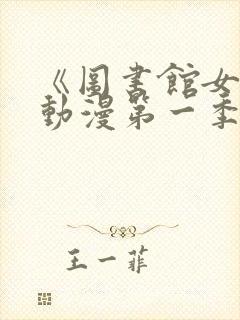 《圖書館女
動漫第一季
王一菲